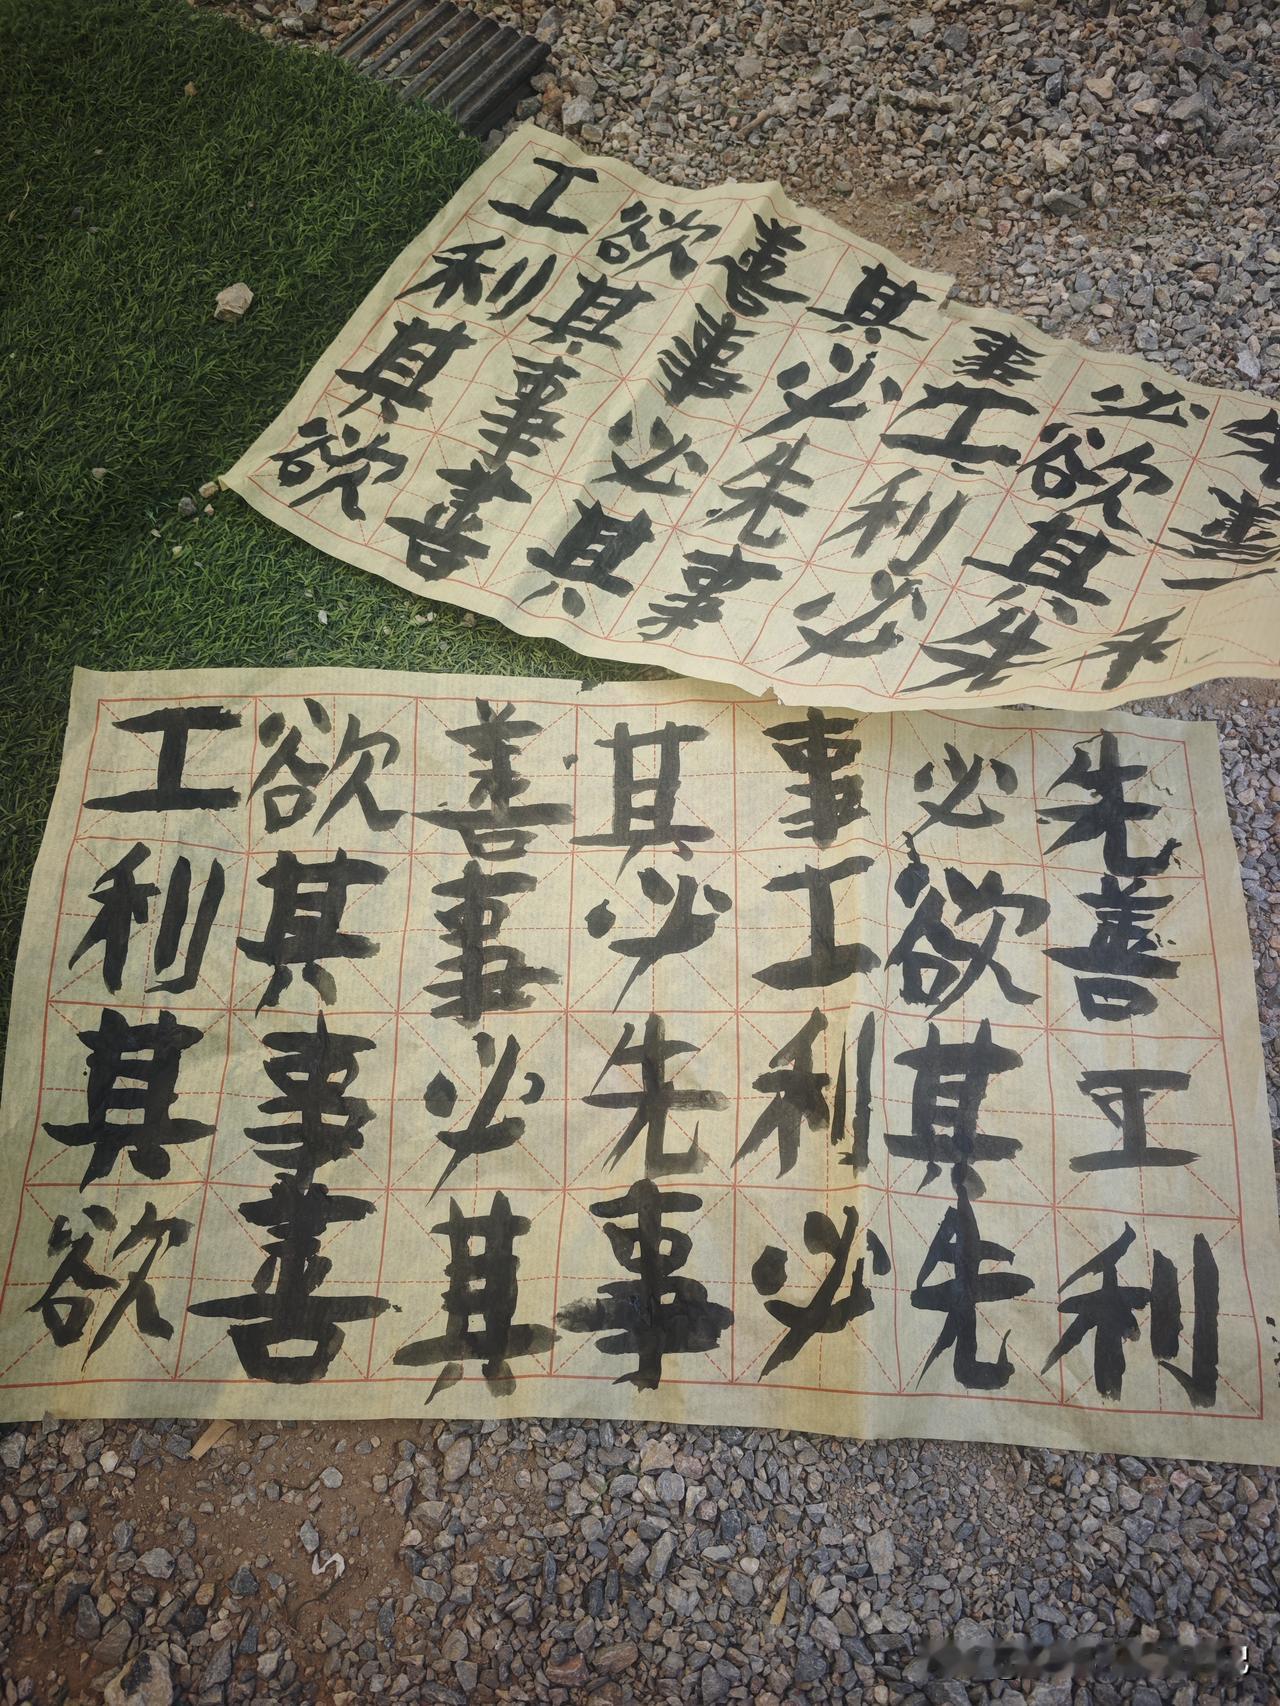 工欲善其事必
利其事必工欲善
其事必先利其
欲善其事必先
工欲善其事必先
利其事必工欲善
其事必先利其工
欲善其事必先利